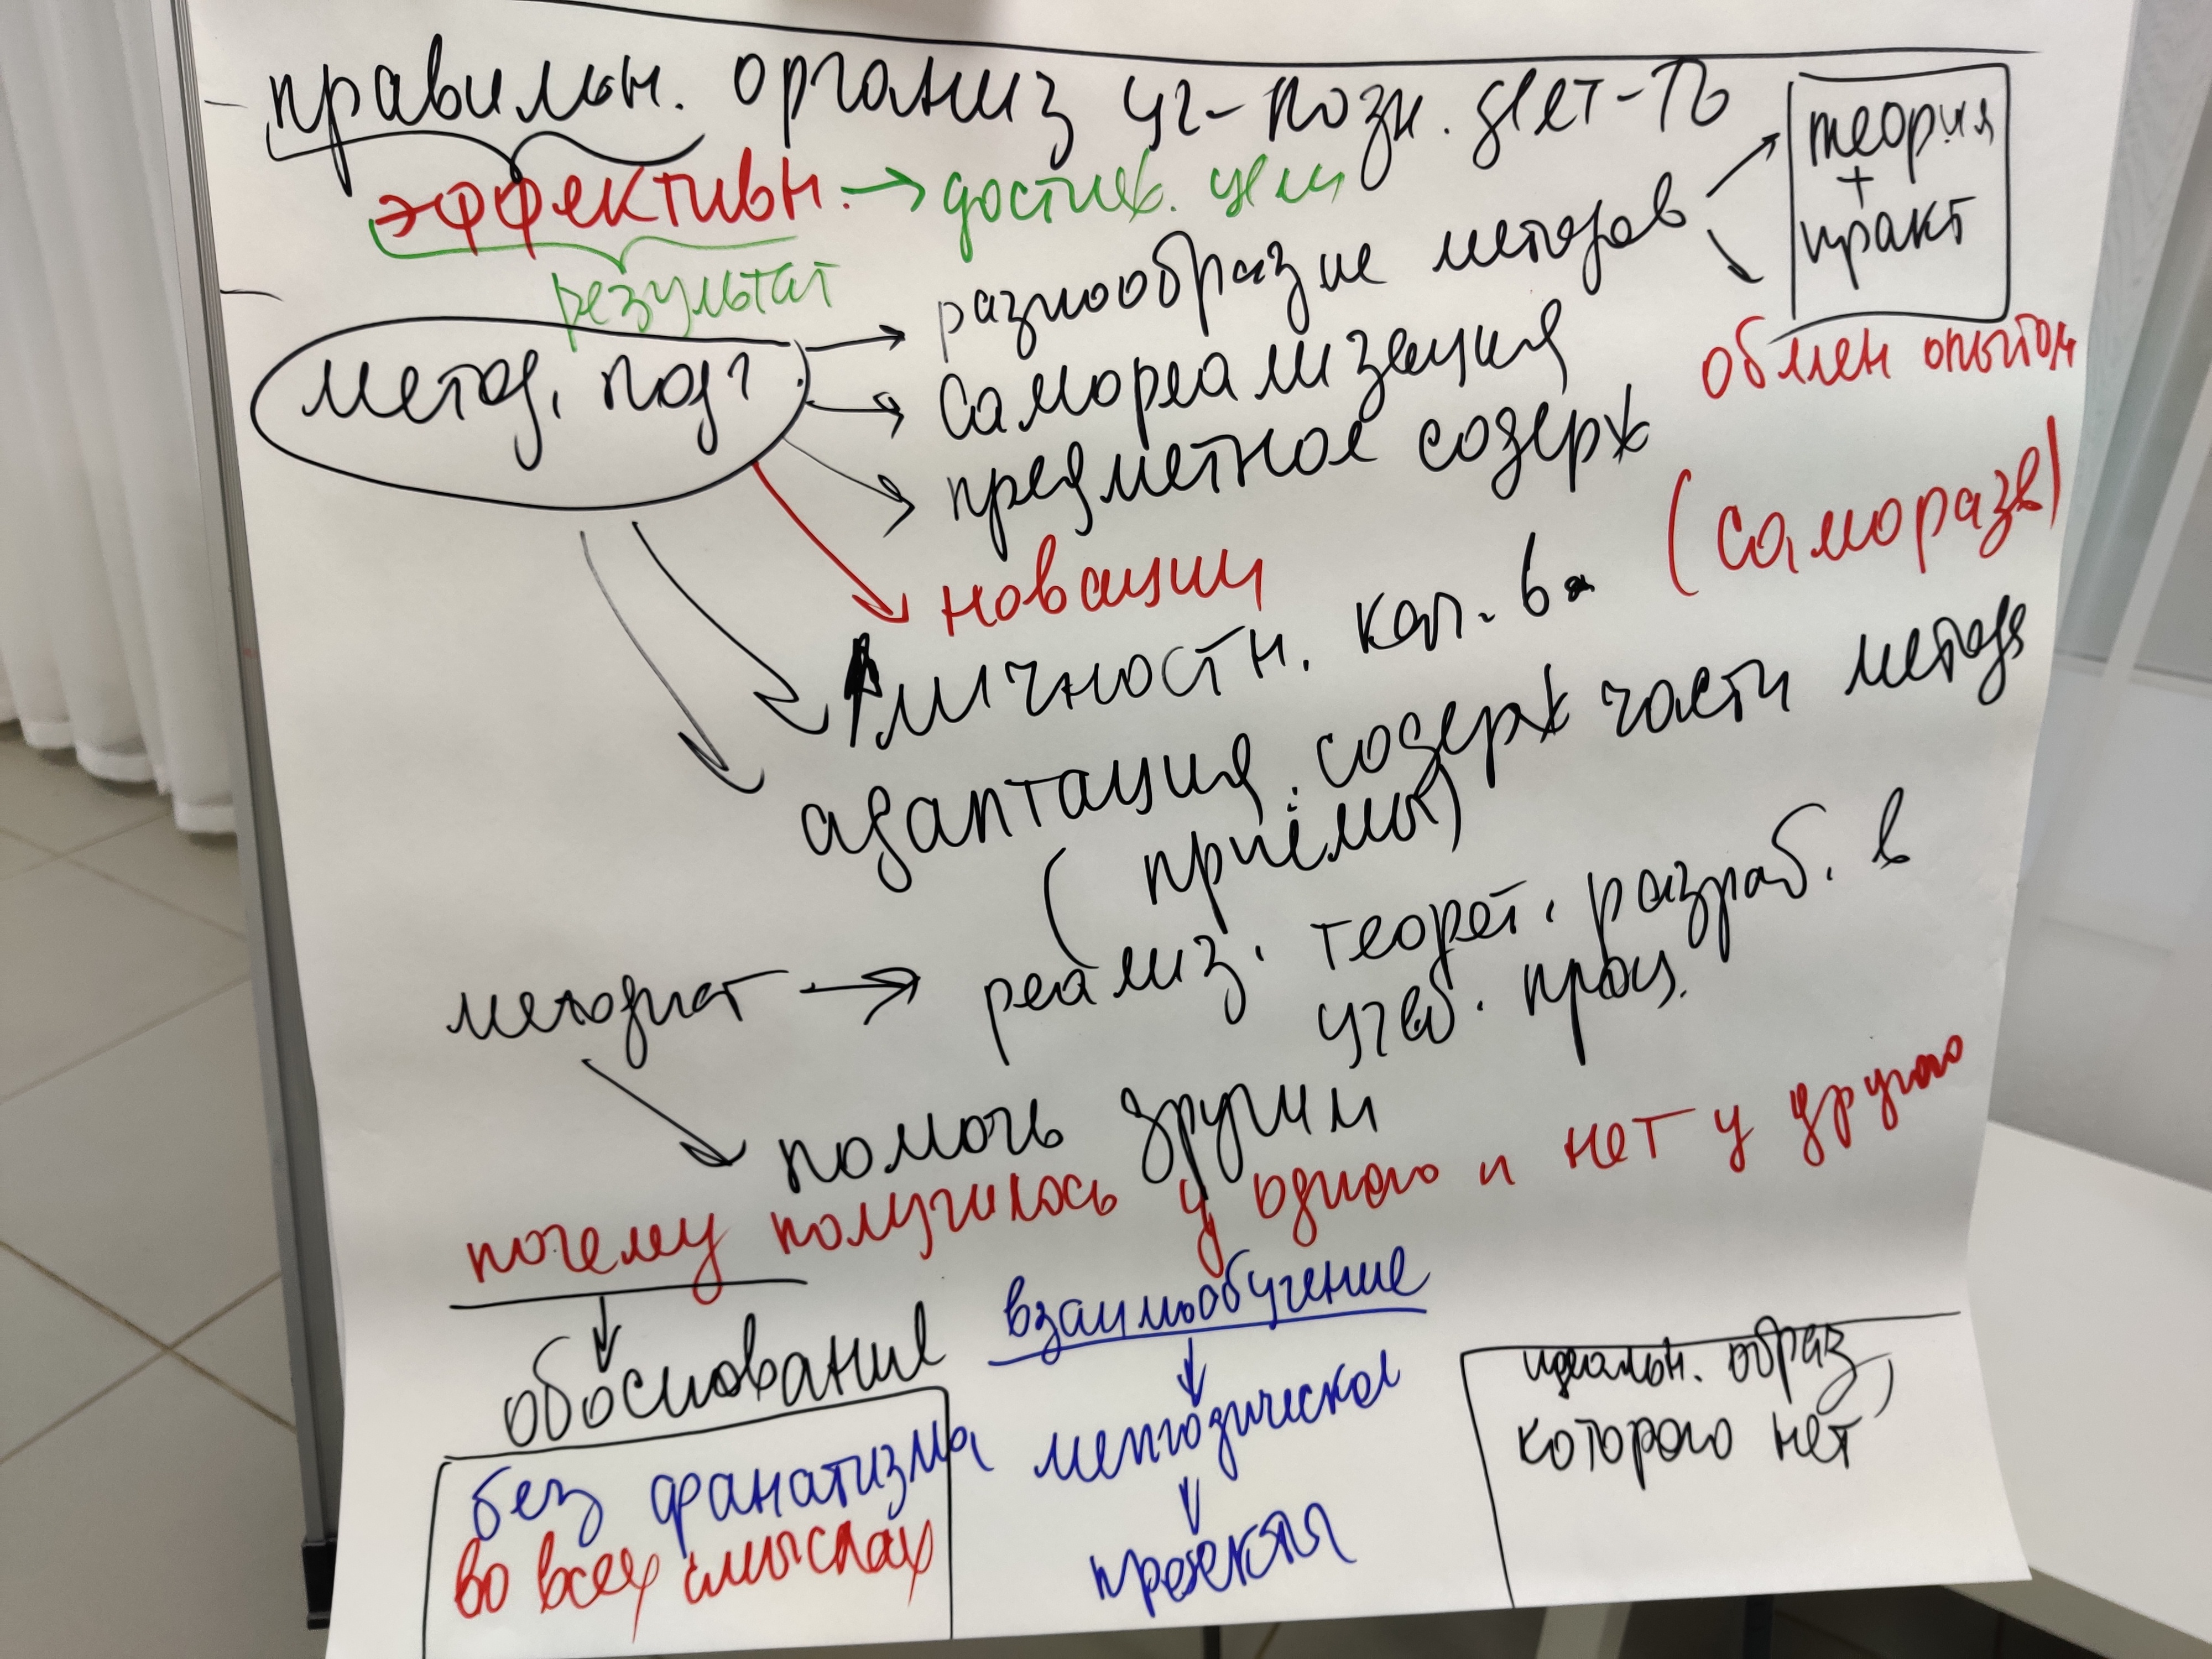 правильн. организ уч-позн. деят-ть
теория
+
практ
эффективн. → достиж. цели
результат
разнообразие методов
обмен опытом
метод. подг.
самореализация
предметное содерж
новации
(саморазв)
личностн. кач-ва
адаптация содерж части метода
(приёмы)
методист → реализ. теорет. разраб. в
учеб. проц.
помочь другим
почему получилось у одного и нет у другого
обоснование
взаимообучение
методическое
проекты
идеальн. образ,
которого нет
без фанатизма
во всех смыслах